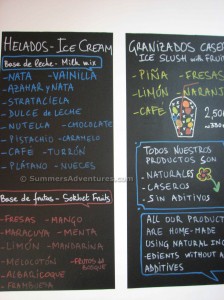 HELADOS - ICE CREAM
Base de leche - Milk mix
-NATA -VAINILLA
-AZAHAR y NATA
-STRATACIELA
-DULCE de LECHE
-NUTELLA -CHOCOLATE
-PISTACHIO -CARAMELO
-CAFE -TURRÓN
-PLÁTANO -NUECES
Base de frutas - Sorbet Fruits
-FRESAS -MANGO
-MARACUYA -MENTA
-LIMÓN -MANDARINA
-MELOCOTÓN -FRUTOS del BOSQUE
-ALBARICOQUE
-FRAMBUESA
GRANIZADOS CASE
ICE SLUSH with FRUIT
-PIÑA -FRESAS
-LIMÓN -NARANJ
-CAFE 2,50
TODOS NUESTROS
PRODUCTOS SON
-NATURALES
-CASEROS
-SIN ADITIVOS
ALL OUR PRODUCT
ARE HOME-MADE
USING NATURAL ING
EDIENTS WITHOUT A
ADDITIVES
© SummersAdventures.com